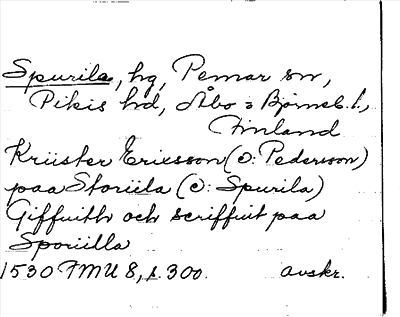 Spurila, hg, Pemar sn,
Pikis hd, Åbo o Björneb. l.,
Finland
Kriister Ericsson (ɔ: Pedersson)
paa Storiila (ɔ: Spurila)
Giffuith och scriffuit paa
Sporiilla
1530 FMU 8, s. 300. avskr.